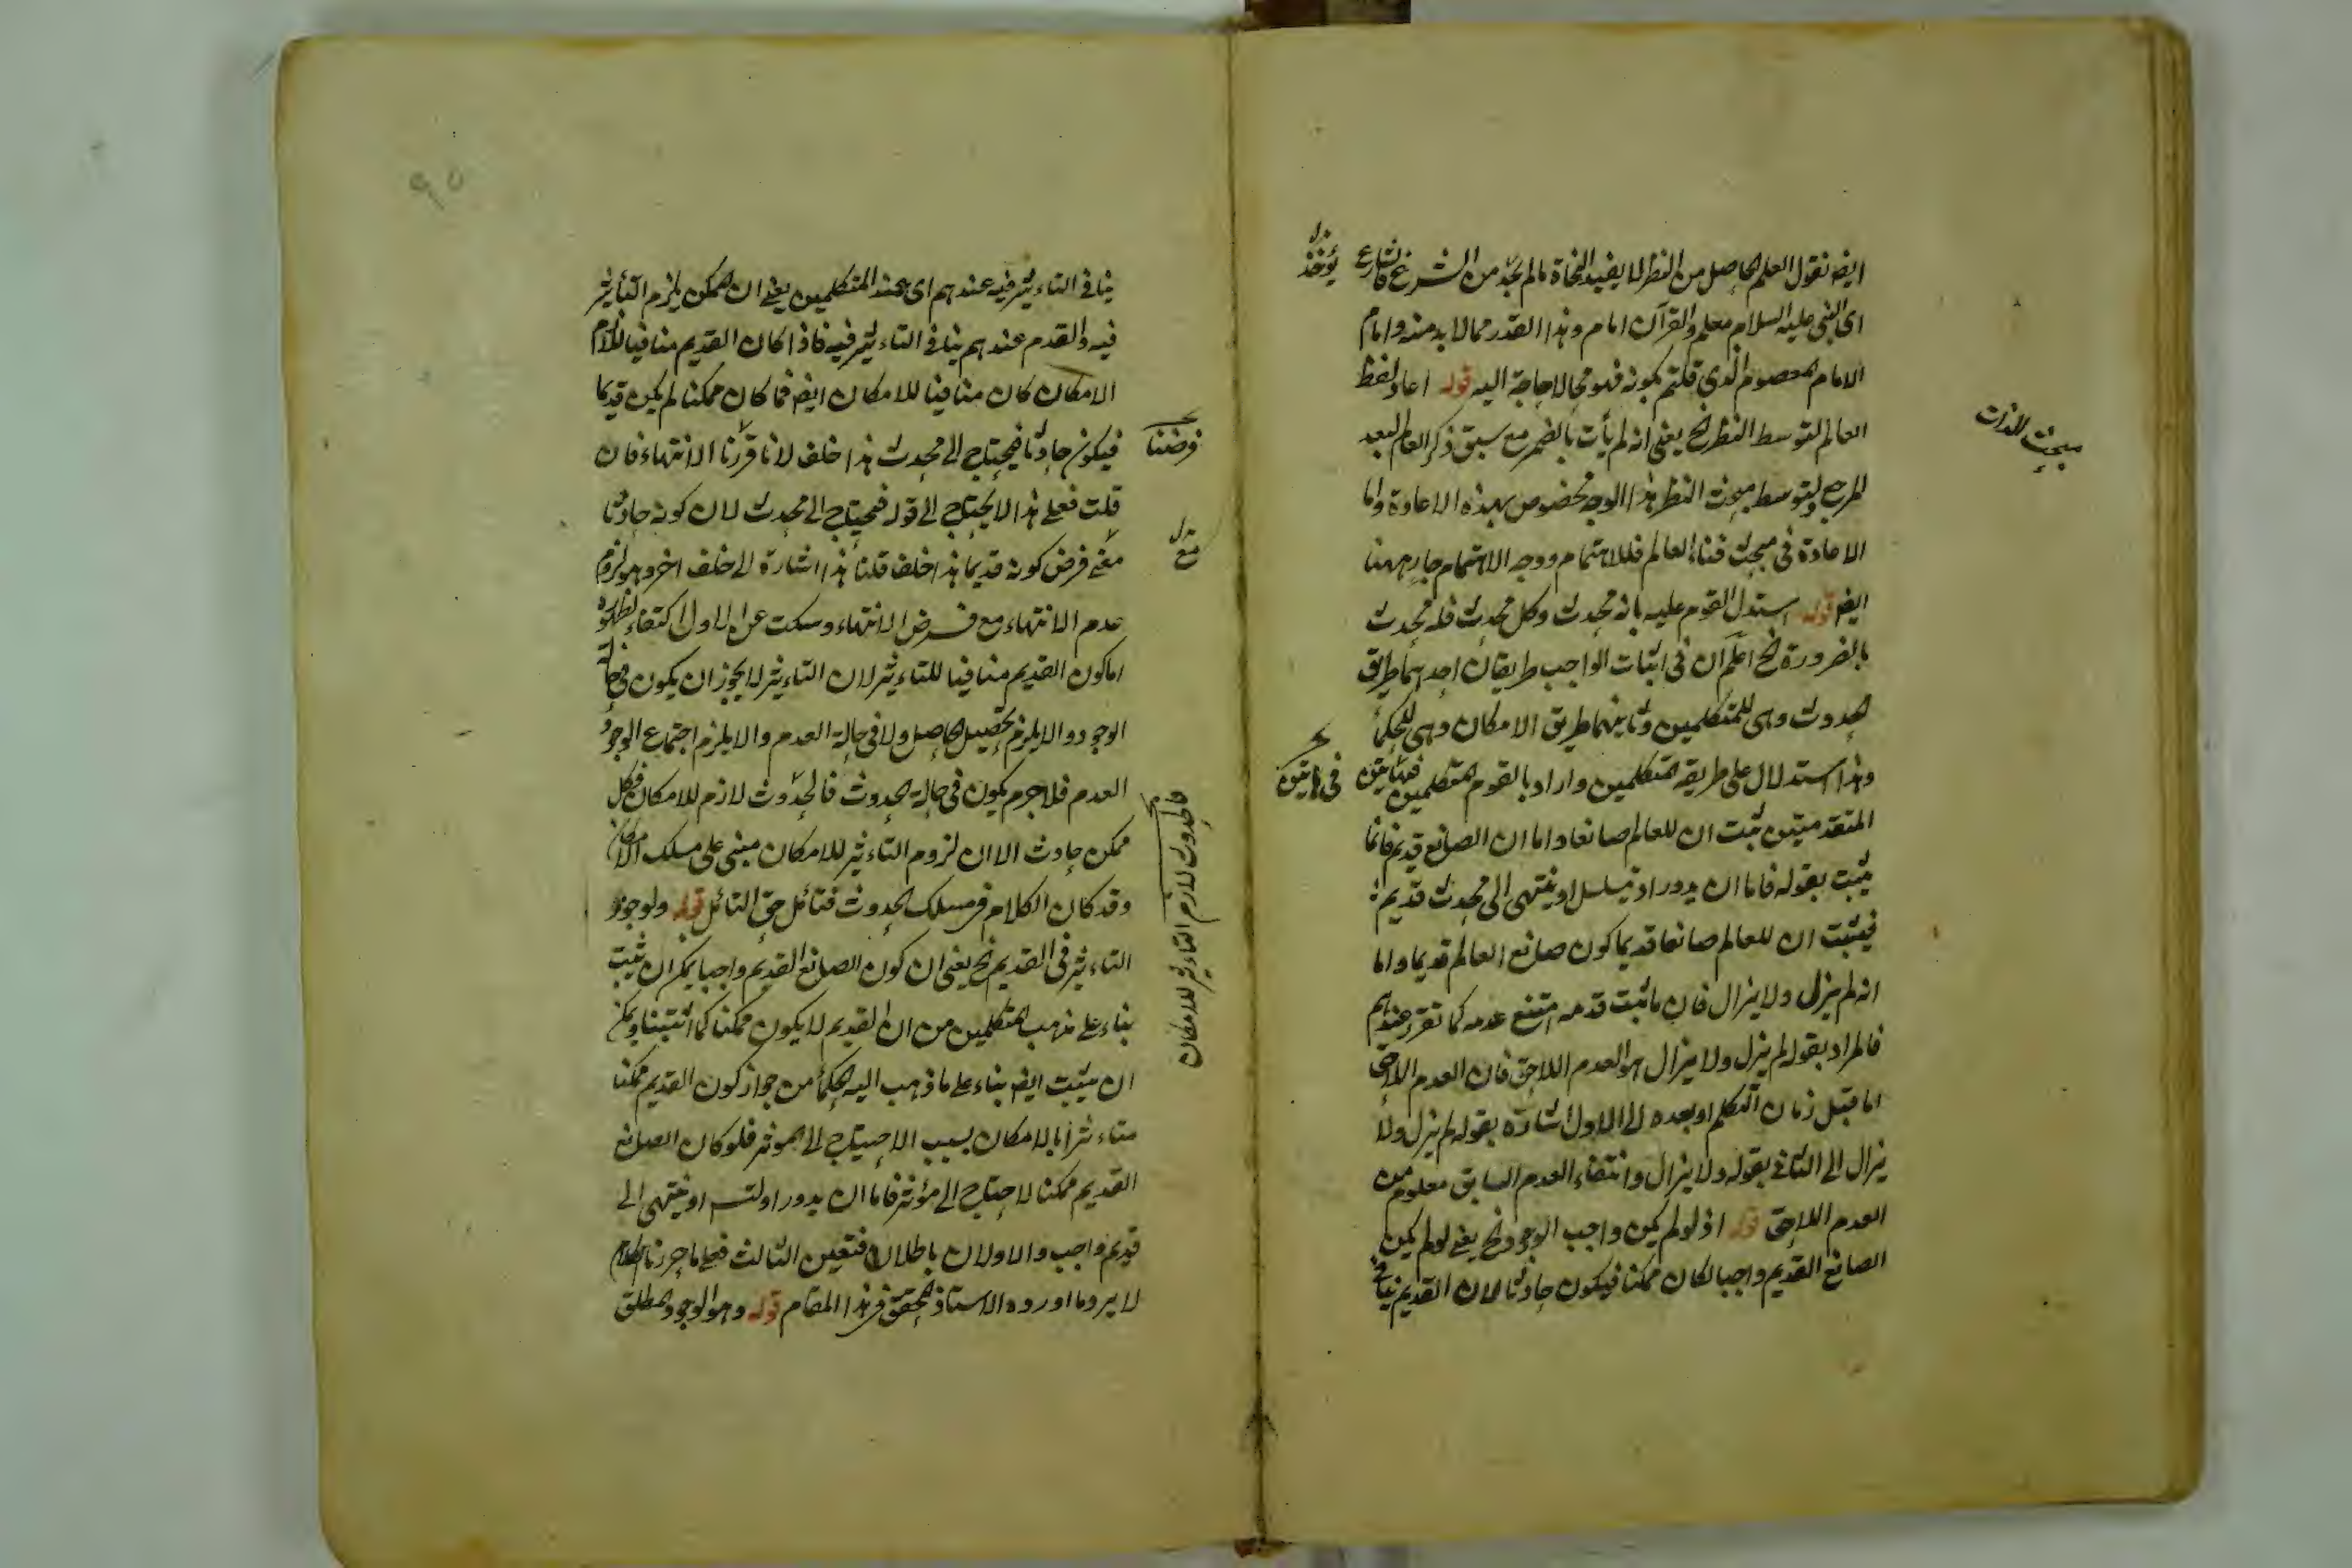 ايضا نقول العلم الحاصل من النظر لا يفيد النجاة ما لم يؤخذ من الشرع فالشارع
اى النبى عليه السلام معلم والقرآن امام وهذا القدر مما لا بد منه واما
الامام المعصوم الذى قلتم بكونه فهو مما لا حاجة اليه قوله اعاد لفظ
العالم لتوسط النظر الخ يعنى انه لم يأت بالضمير مع سبق ذكر العالم لبعد
المرجع ولتوسط مبحث النظر هذا الوجه مخصوص بهذه الاعادة واما
الاعادة فى مبحث فناء العالم فللاهتمام ووجه الاهتمام جار ههنا
ايضا قوله استدل القوم عليه بانه محدث وكل محدث فله محدث
بالضرورة الخ اعلم ان فى اثبات الواجب طريقان احدهما طريق
الحدوث وهى للمتكلمين وثانيهما طريق الامكان وهى للحكماء
وهذا استدلال على طريقة المتكلمين واراد بالقوم المتكلمين فبهاتين
المتقدمتين ثبت ان للعالم صانعا واما ان الصانع قديم فانما
يثبت بقوله فاما ان يدور او يتسلسل او ينتهى الى محدث قديم
فيثبت ان للعالم صانعا قديما كون صانع العالم قديما واما
انه لم يزل ولا يزال فان ما ثبت قدمه امتنع عدمه كما تقرر عندهم
فالمراد بقوله لم يزل ولا يزال هو العدم اللاحق فان العدم اللاحق
اما قبل زمان التكلم او بعده الى الاول اشارة بقوله لم يزل ولا
يزال الى الثانى بقوله ولا يزال وانتفاء العدم السابق معلوم من
العدم اللاحق قوله اذ لو لم يكن واجب الوجود الخ يعنى لو لم يكن
الصانع القديم واجبا لكان ممكنا فيكون حادثا لان القديم ينافى
يؤخذ
مبحث الذات
ينافى التاءثير فيه عندهم اى عند المتكلمين يعنى ان الممكن يلزم التأثير
فيه والقدم عندهم ينافى التاءثير فيه فاذا كان القديم منافيا للازم
الامكان كان منافيا للامكان ايضا فما كان ممكنا لم يكن قديما
فيكون حادثا فيحتاج الى محدث هذا خلف لانا قررنا الانتهاء فان
قلت فعلى هذا لا يحتاج الى قوله فيحتاج الى محدث لان كونه حادثا
مع فرض كونه قديما هذا خلف قلنا هذا اشارة الى خلف اخر وهو لزوم
عدم الانتهاء مع فرض الانتهاء وسكت عن الاول اكتفاء لظهوره
اما كون القديم منافيا للتاءثير لان التاءثير لا يجوز ان يكون فى حالة
الوجود والا يلزم تحصيل الحاصل ولا فى حالة العدم والا يلزم اجتماع الوجود
العدم فلا جرم يكون فى حالة الحدوث فالحدوث لازم للامكان فكل
ممكن حادث الا ان لزوم التاءثير للامكان مبنى على مسلك الامكان
وقد كان الكلام فى مسلك الحدوث فتأمل حق التأمل قوله ولو جوز
التاءثير فى القديم الخ يعنى ان كون الصانع القديم واجبا يمكن ان يثبت
بناء على مذهب المتكلمين من ان القديم لا يكون ممكنا كما اثبتنا ويمكن
ان يثبت ايضا بناء على ما ذهب اليه الحكماء من جواز كون القديم ممكنا
متاءثرا بالامكان بسبب الاحتياج الى المؤثر فلو كان الصانع
القديم ممكنا لاحتاج الى مؤثر فاما ان يدور او يتس او ينتهى الى
قديم واجب والاولان باطلان فتعين الثالث فعلى ما حررنا الكلام
لا يرد ما اورده الاستاذ المحقق فى هذا المقام قوله وهو الوجود المطلق
فرضنا
مع
فالحدوث لازم التاءثير للامكان